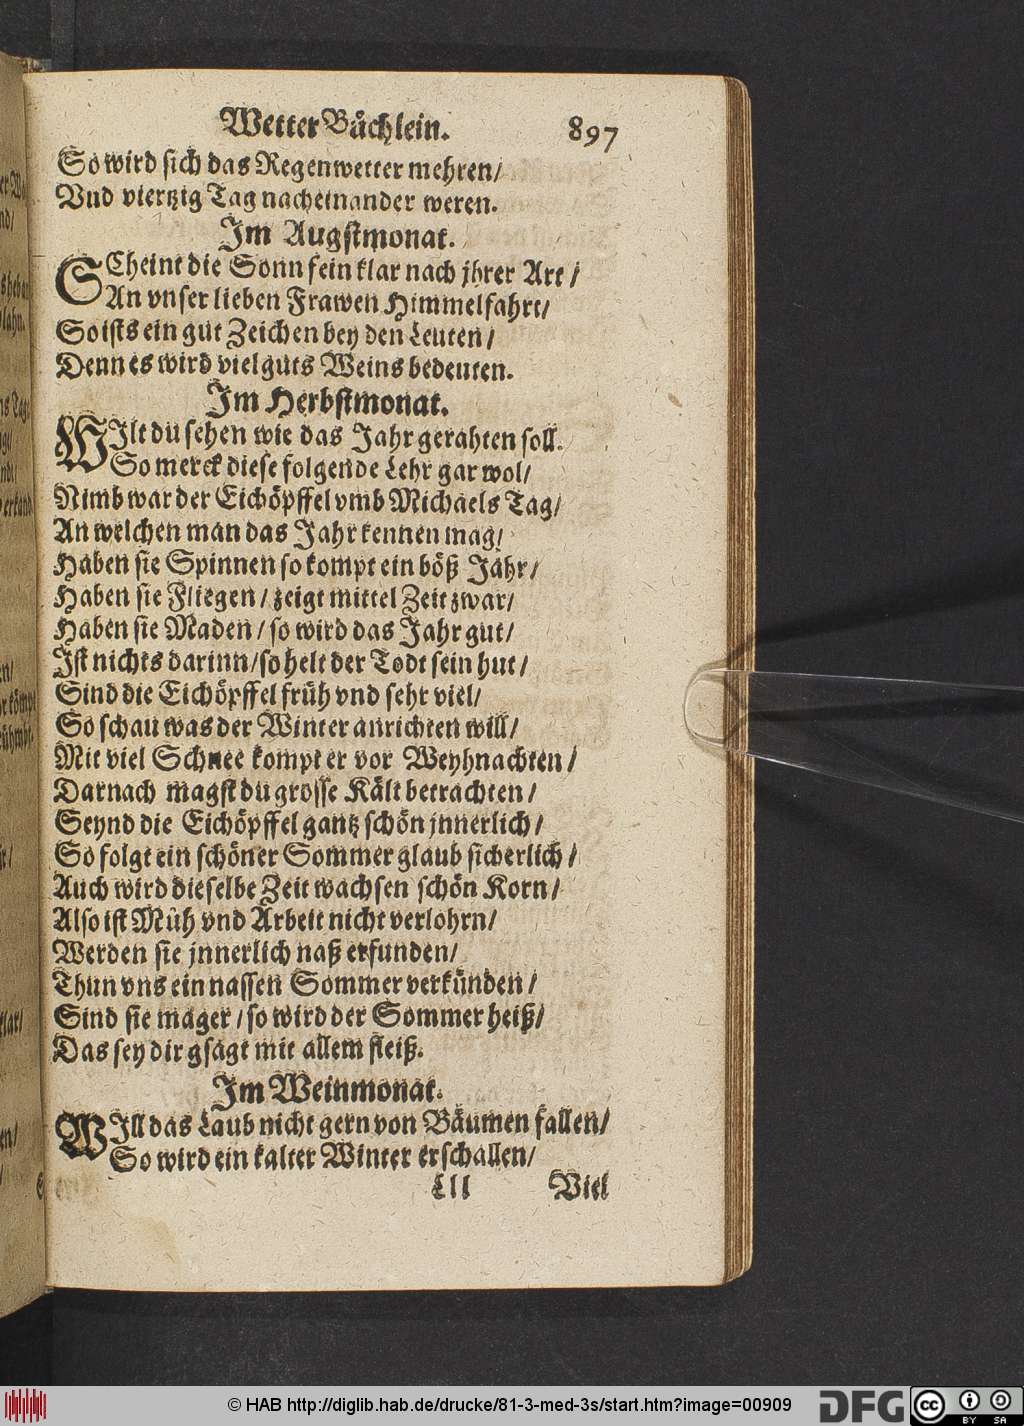 Wetter Büchlein. 897
So wird sich das Regenwetter mehren/
Vnd viertzig Tag nacheinander weren.
Im Augstmonat.
SCheint die Sonn fein klar nach jhrer Art/
An vnser lieben Frawen Himmelfahrt/
So ists ein gut Zeichen bey den Leuten/
Denn es wird viel guts Weins bedeuten.
Im Herbstmonat.
WIlt du sehen wie das Jahr gerahten soll.
So merck diese folgende Lehr gar wol/
Nimb war der Eichöpffel vmb Michaels Tag/
An welchen man das Jahr kennen mag/
Haben sie Spinnen so kompt ein böß Jahr/
Haben sie Fliegen/ zeigt mittel Zeit zwar/
Haben sie Maden/ so wird das Jahr gut/
Ist nichts darinn/ so helt der Todt sein hut/
Sind die Eichöpffel früh vnd sehr viel/
So schau was der Winter anrichten will/
Mit viel Schnee kompt er vor Weyhnachten/
Darnach magst du grosse Kält betrachten/
Seynd die Eichöpffel gantz schön jnnerlich/
So folgt ein schöner Sommer glaub sicherlich/
Auch wird dieselbe Zeit wachsen schön Korn/
Also ist Müh vnd Arbeit nicht verlohrn/
Werden sie jnnerlich naß erfunden/
Thun vns ein nassen Sommer verkünden/
Sind sie mager/ so wird der Sommer heiß/
Das sey dir gsagt mit allem fleiß.
Im Weinmonat.
WIll das Laub nicht gern von Bäumen fallen/
So wird ein kalter Winter erschallen/
Lll Viel
© HAB http://diglib.hab.de/drucke/81-3-med-3s/start.htm?image=00909
DFG
cc BY SA